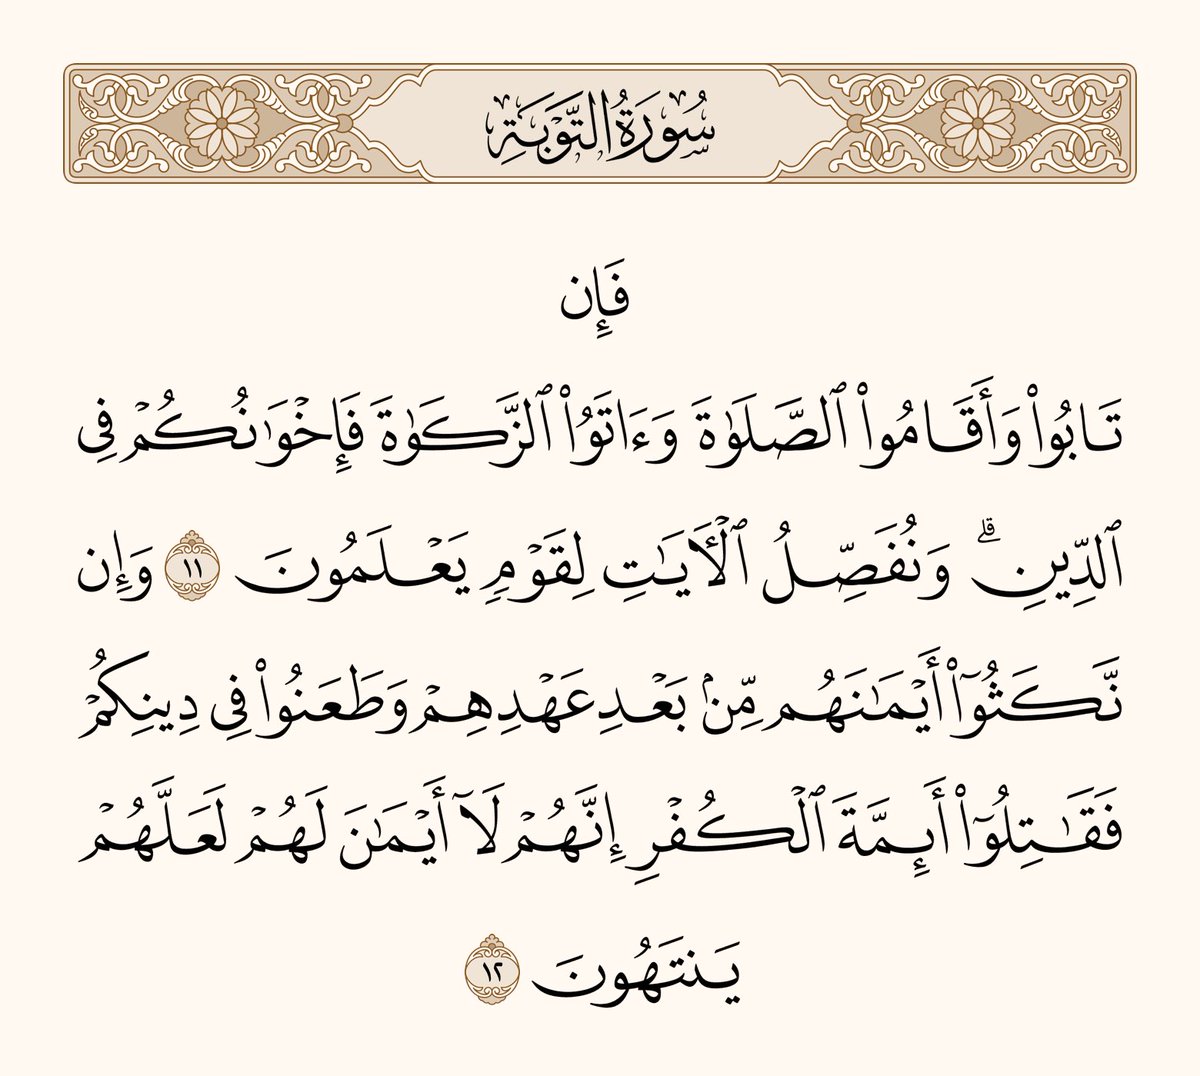 سُورَةُ التَّوْبَةِ
فَإِن
تَابُوا۟ وَأَقَامُوا۟ ٱلصَّلَوٰةَ وَءَاتَوُا۟ ٱلزَّكَوٰةَ فَإِخْوَٰنُكُمْ فِى
ٱلدِّينِ ۗ وَنُفَصِّلُ ٱلْـَٔايَـٰتِ لِقَوْمٍ يَعْلَمُونَ ١١ وَإِن
نَّكَثُوٓا۟ أَيْمَـٰنَهُم مِّنۢ بَعْدِ عَهْدِهِمْ وَطَعَنُوا۟ فِى دِينِكُمْ
فَقَـٰتِلُوٓا۟ أَئِمَّةَ ٱلْكُفْرِ إِنَّهُمْ لَآ أَيْمَـٰنَ لَهُمْ لَعَلَّهُمْ
يَنتَهُونَ ١٢